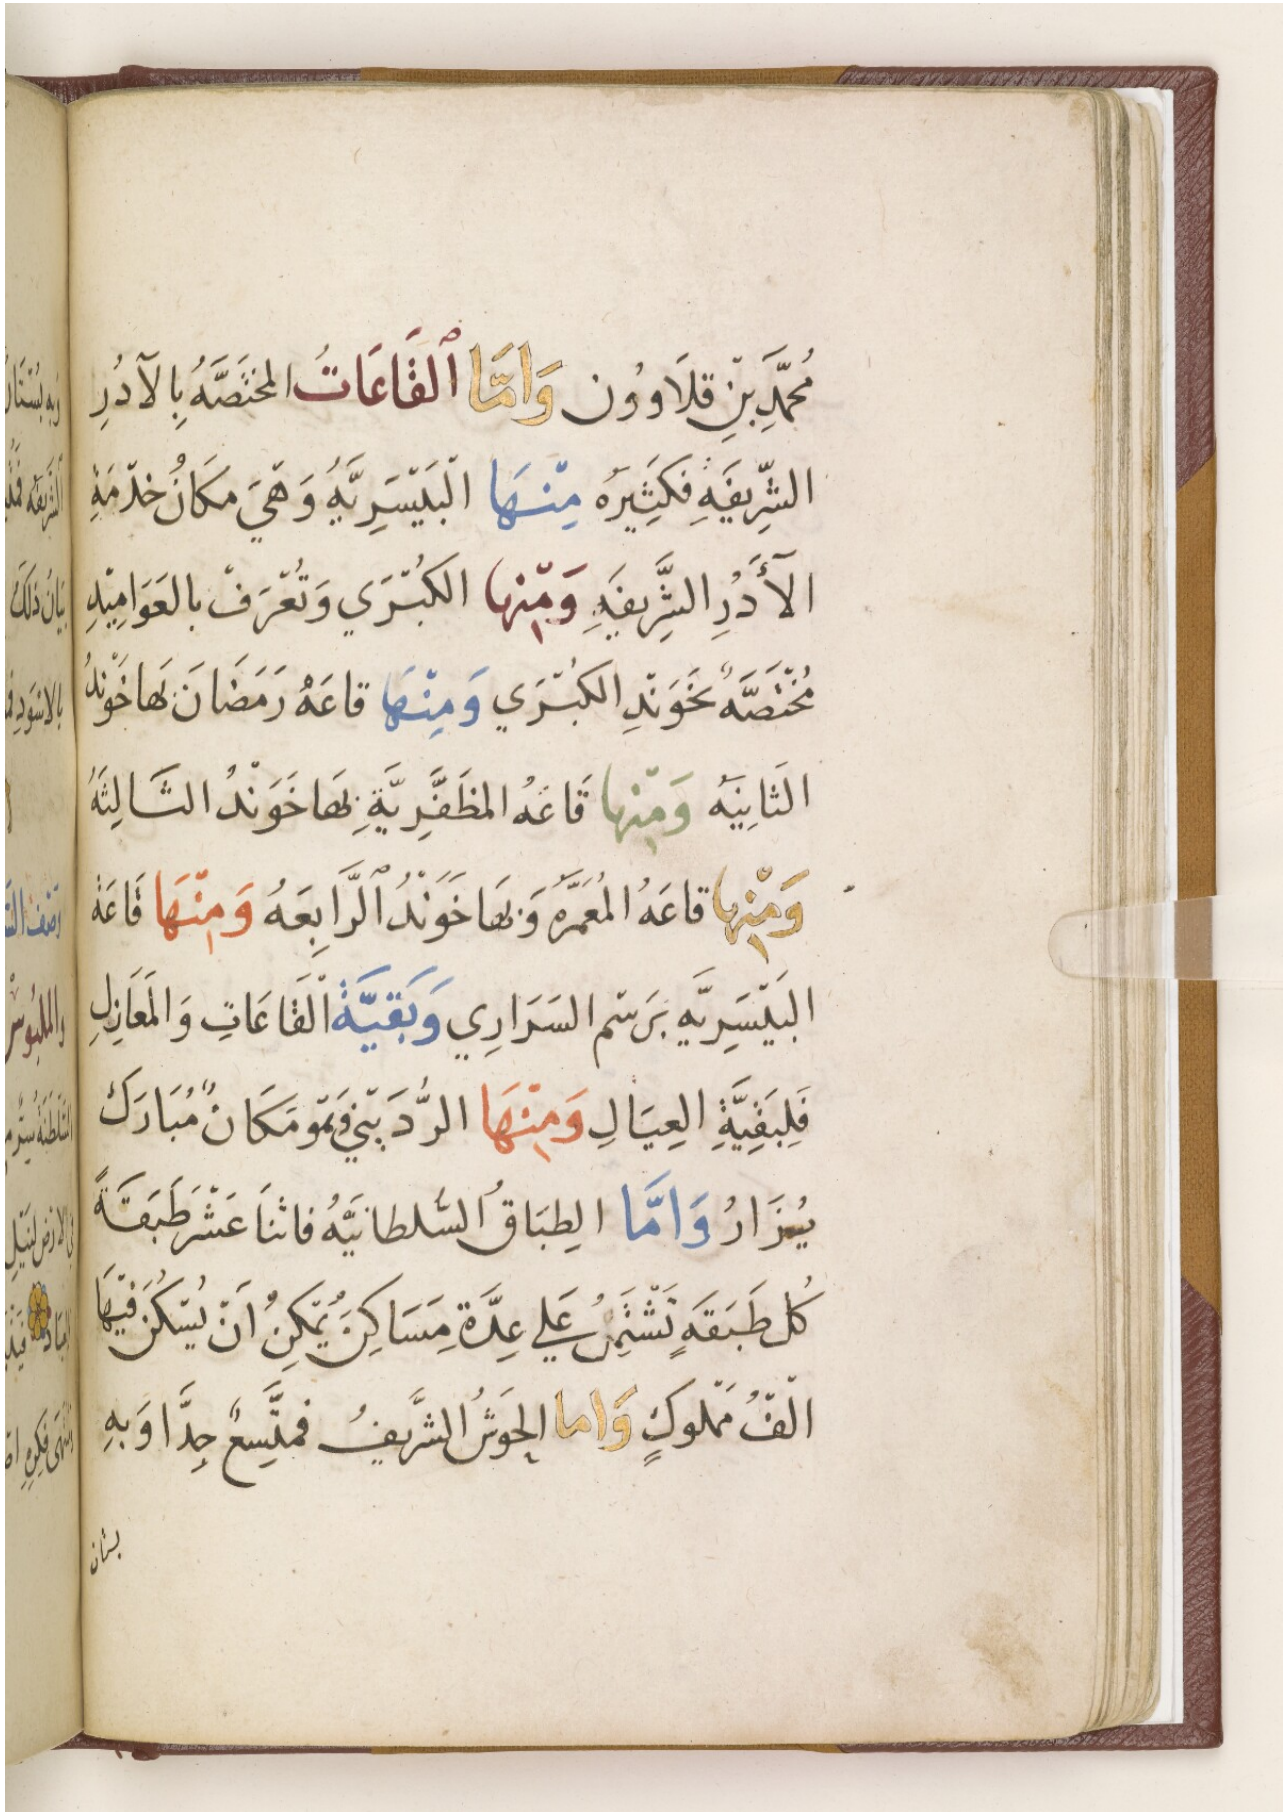 مُحَمَّدِ بْنِ قلَاوُون وَامَّا ٱلقَاعَاتُ المختَصَّهُ بِالآدُرِ
الشَّرِيفَةِ فَكَثِيرَه مِنْهَا الْبَيْسَرِيَّهُ وَهْيَ مكَانُ خدْمَةِ
الآدُرِ الشَّرِيفَةِ وَمِنْها الكُبْرَي وَتُعْرَفْ بالعَوَامِيْدِ
مُخْتَصَّةٌ بخَوَنْدِ الكُبْرَي وَمِنْهَا قاعَهُ رَمَضَانَ بهَا خَوَنْدُ
الثانِيَه وَمِنْها قَاعَهُ المظَفَّرِيَّةِ بهَا خَوَنْدُ الثَالِثَهُ
وَمِنْها قاعَهُ المُعَمَّرَه وَبهَا خَوَنْدُ ٱلرَّابِعَهُ وَمِنْهَا قَاعَةْ
البَيْسَرِيَّه بَرَسْم السَرَارِي وَبَقِيَّةُ الْقَاعَاتِ وَالمَغَازِلِ
فَلِبَقِيَّةِ العِيَالِ وَمِنْهَا الرُّدَيْنِي وَهْوَ مَكَانٌ مُبَارَك
يُزَارُ وَامَّا الطِبَاقُ السُّلطانيَّهُ فاثنا عَشْرَ طَبَقَةً
كُل طَبَقَةٍ تَشْتَمِلُ عَلي عِدَّة مَسَاكِنَ يُمْكِنُ اَنْ يُسْكَنَ فِيْهَا
الْفُ مَمْلوكٍ وَاما الحَوشُ الشَّرِيفُ فمتَّسِعٌ جِدًّا وَبِهِ
بستان